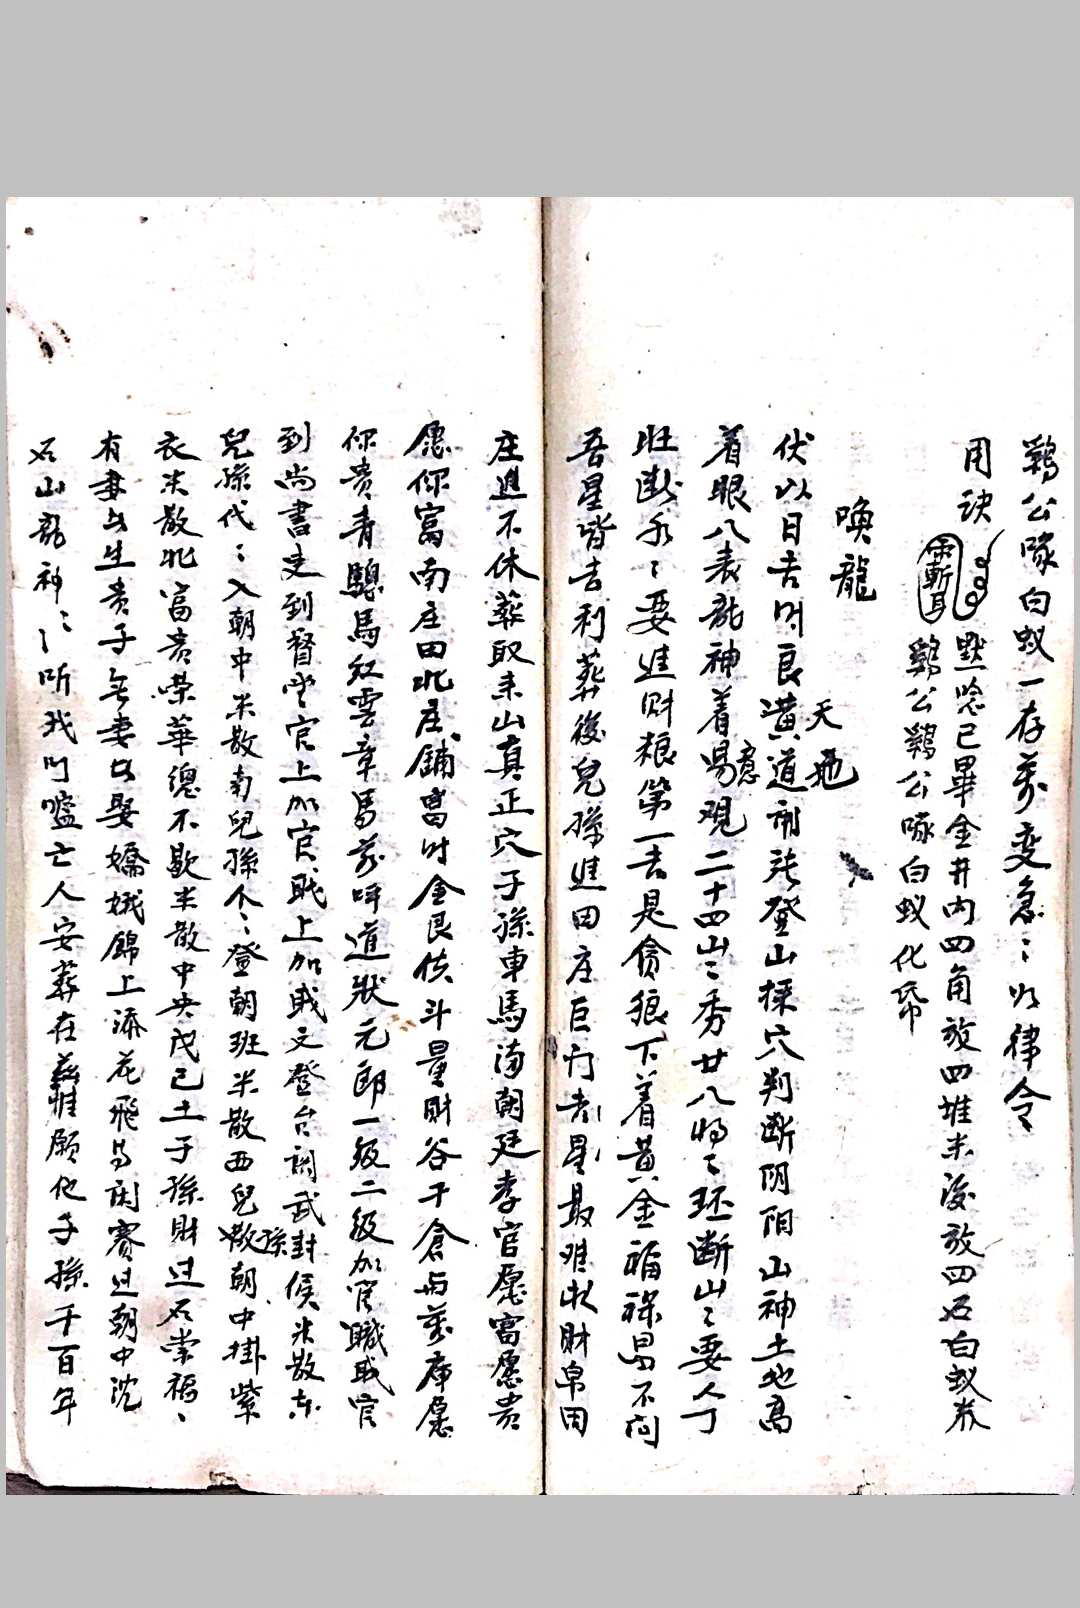 鷄公啄白蚁一存萬变急〻以律令
用诀 默唸已畢金井內四角放四堆米後放四石白蚁
雨斬耳 鷄公鷄公啄白蚁化
喚龍
天地
伏以日吉时良黄道登山採穴判断阴阳山神土地高
着眼八表龍神着意觀二十四山〻秀廿八将〻断山〻要人丁
旺断水〻要進財粮第一吉是贪狼下着黄金福禄昌不问
吾星皆吉利葬後兒孫進田庄巨门星最难财帛田
庄進不休葬取来山真正穴子孫車馬满朝廷李官愿富愿贵
愿你富南庄田北庄鋪金艮斗量財谷千倉与萬庫愿
你贵青驄馬红雲章馬前道狀元郎一級二級加官職官
到尚書吏到督堂官上加官職上加文登台阁武封侯米散东
兒孫代〻入朝中米散南兒孫个〻登朝班米散西兒孫朝中掛紫
衣米散北富贵榮華總不歇米散中央戊己土子孫財过石崇福〻
有妻生贵子無妻娶嬌娥錦上添花赛过朝中沈
石山龍神〻〻听我亡人安葬在願他子孫千百年